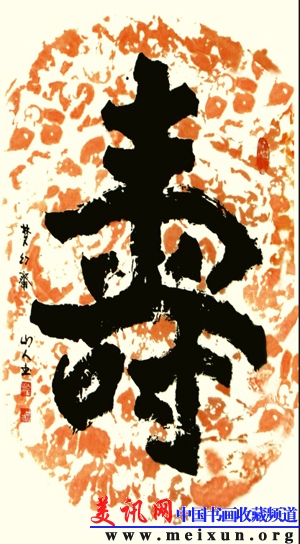 壽
山人书
美讯网 中国书画收藏频道
www.meixun.org